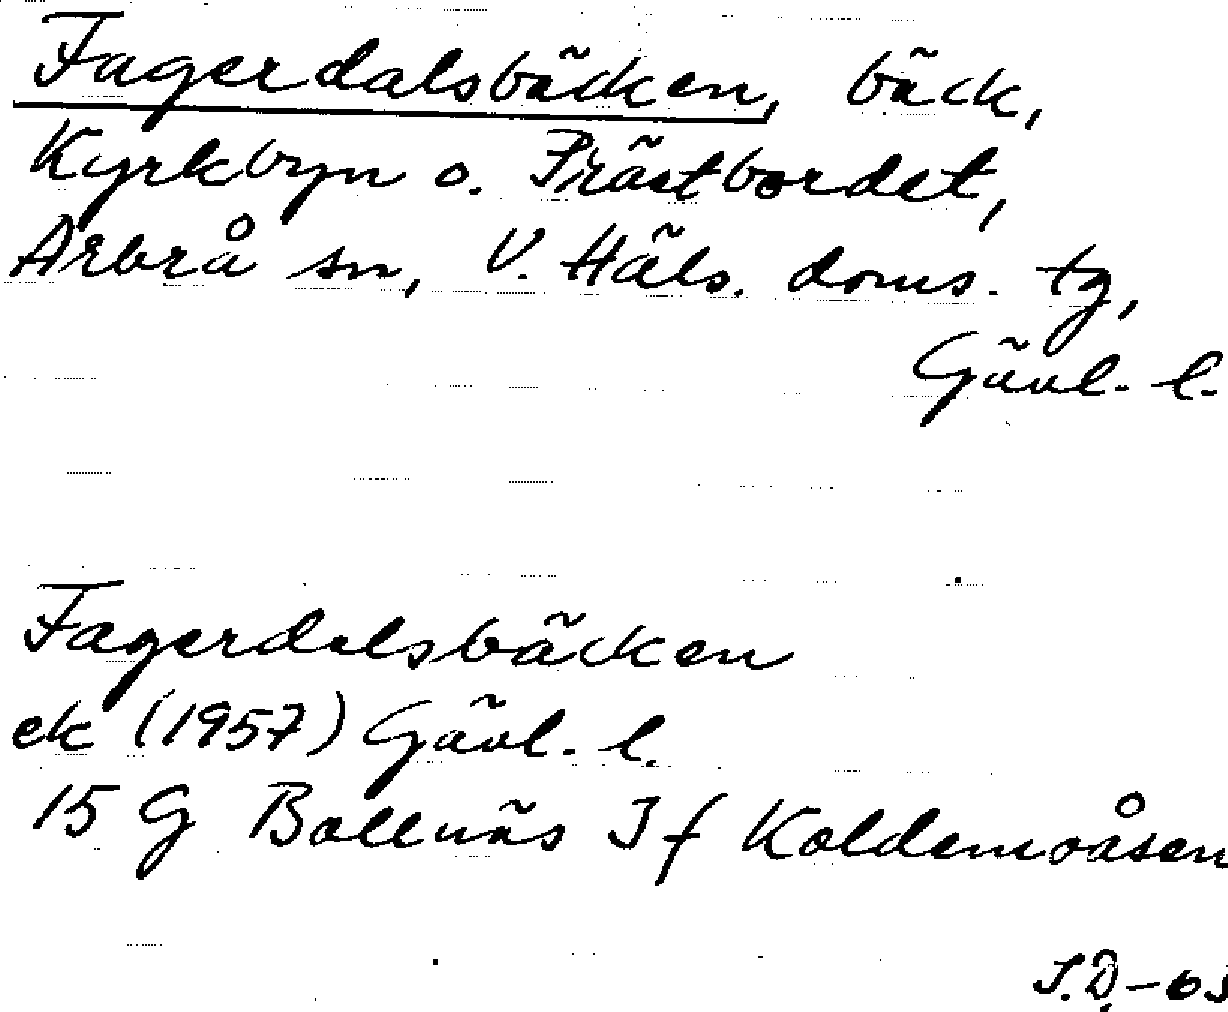 Fagerdalsbäcken, bäck,
Kyrkbyn o. Prästbordet,
Arbrå sn, V. Häls. doms. tg,
Gävl. l.
Fagerdalsbäcken
ek (1957) Gävl. l.
15 G Bollnäs 3 f Koldemoåsen